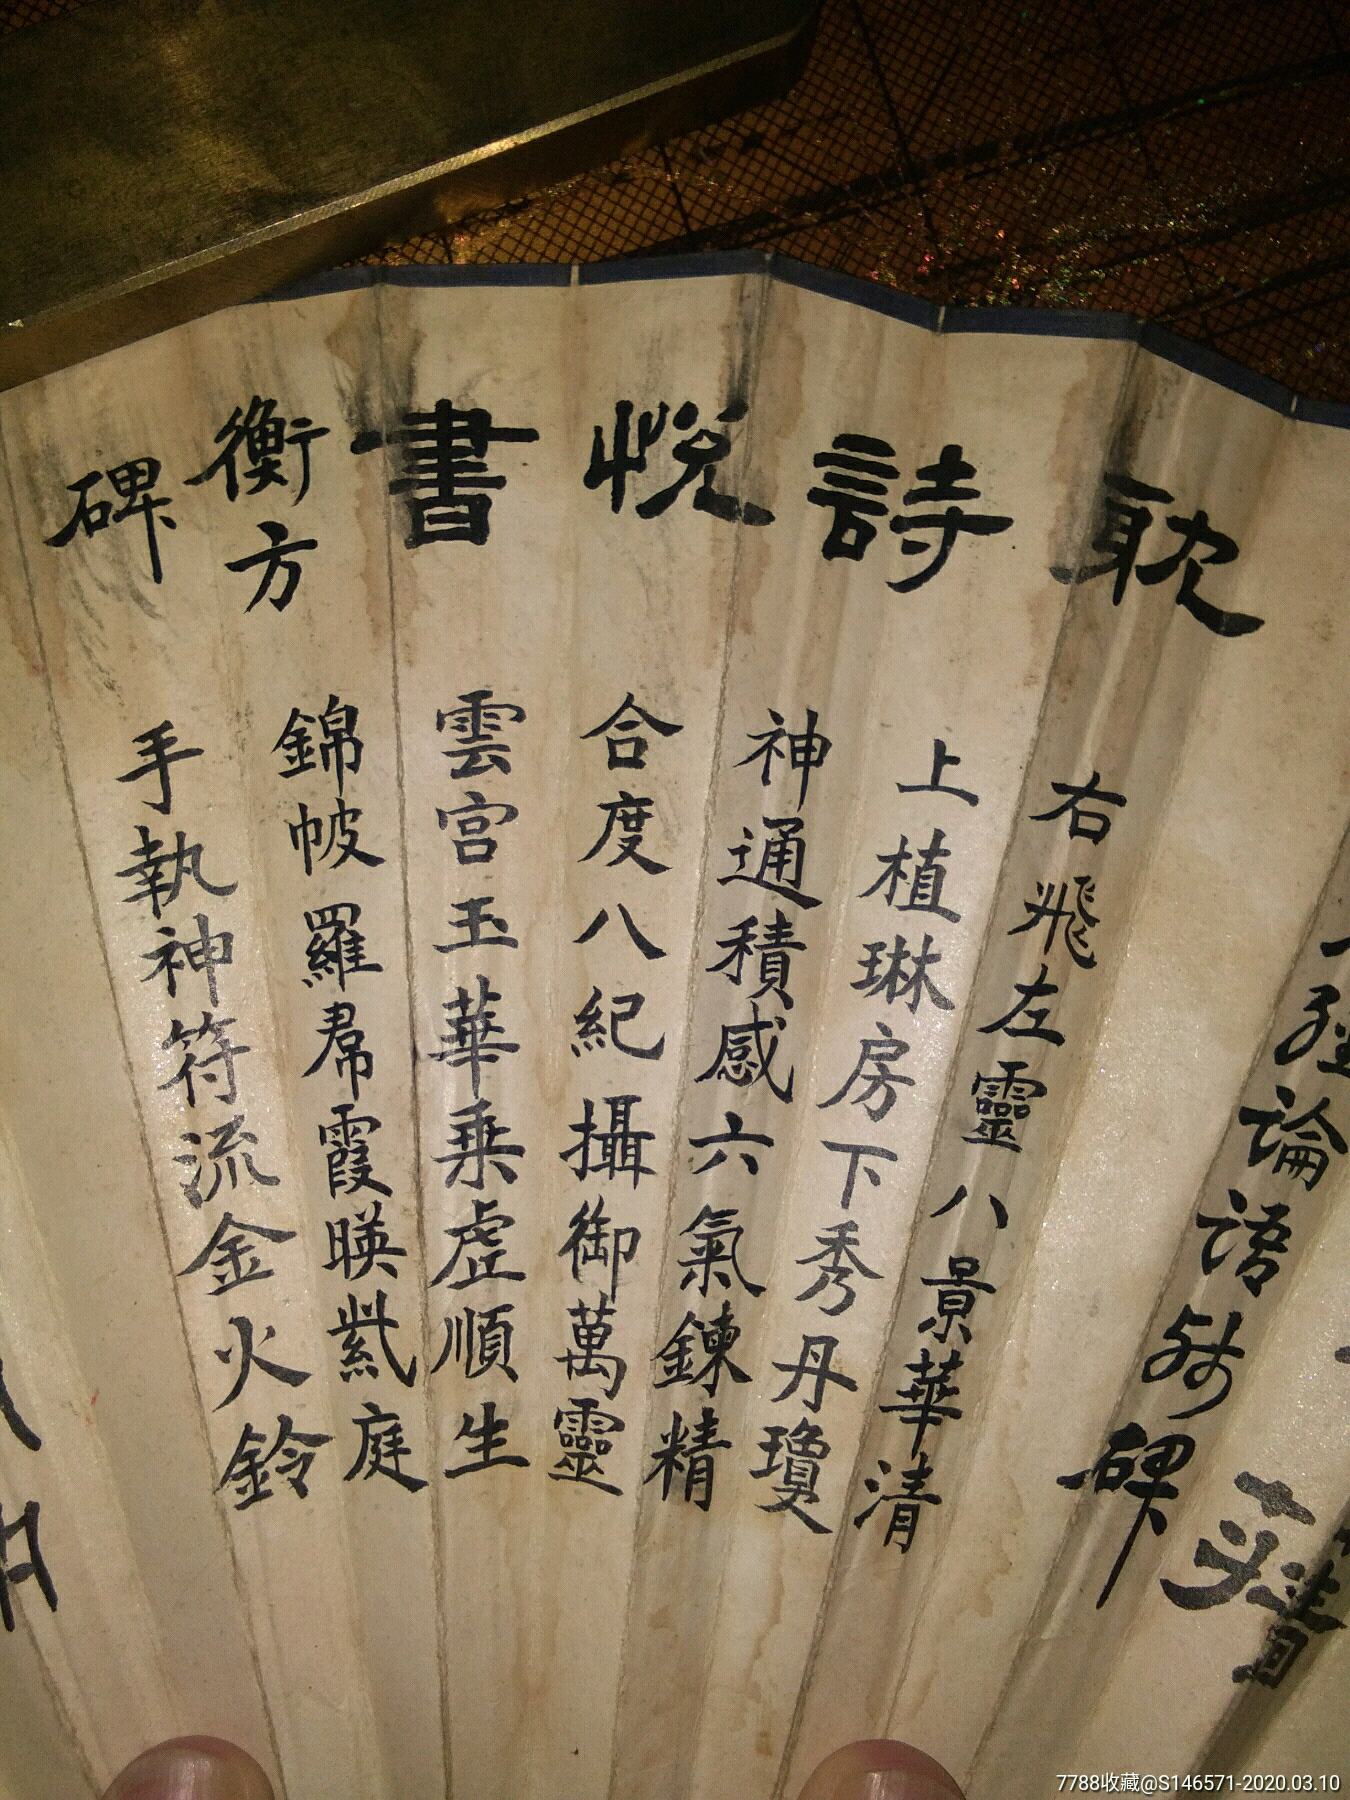 論語殘碑
耽詩悅書
衡方
碑
右飛左靈八景華清
上植琳房下秀丹瓊
神通積感六氣鍊精
合度八紀攝御萬靈
雲宮玉華乗虛順生
錦帔羅帬霞暎紫庭
手執神符流金火鈴
7788收藏@S146571-2020.03.10